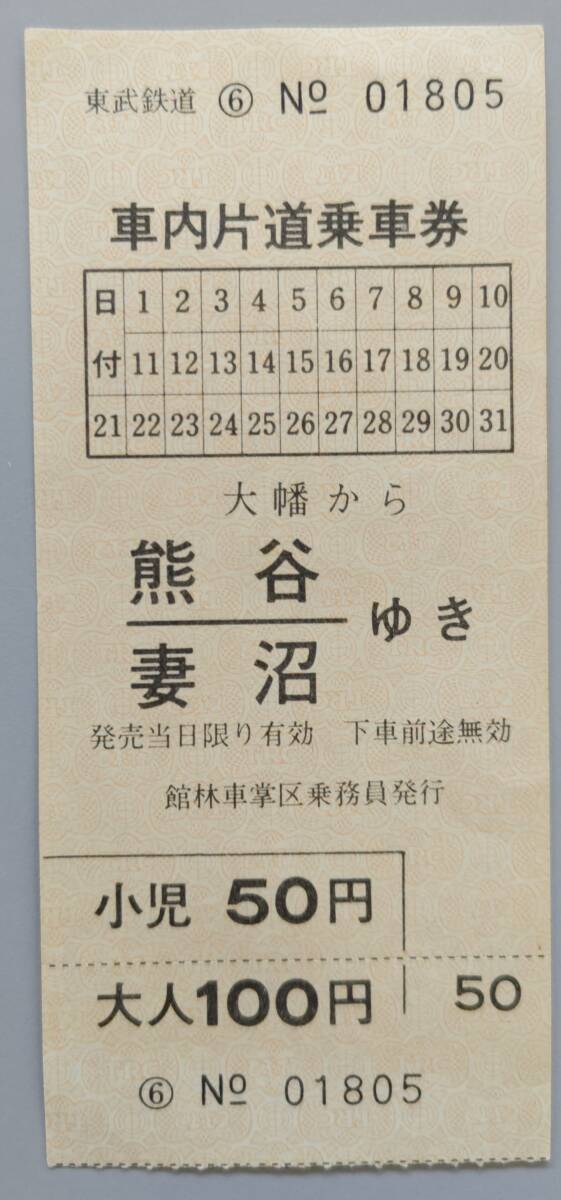 東武鉄道 ⑥ № 01805
車内片道乗車券
日 1 2 3 4 5 6 7 8 9 10
付 11 12 13 14 15 16 17 18 19 20
21 22 23 24 25 26 27 28 29 30 31
大幡から
熊谷
妻沼
ゆき
発売当日限り有効 下車前途無効
館林車掌区乗務員発行
小児 50円
大人100円 50
⑥ № 01805